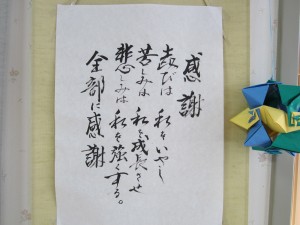 感謝
喜びは 私をいやし
苦しみは 私を成長させ
悲しみは 私を強くする。
全部に感謝